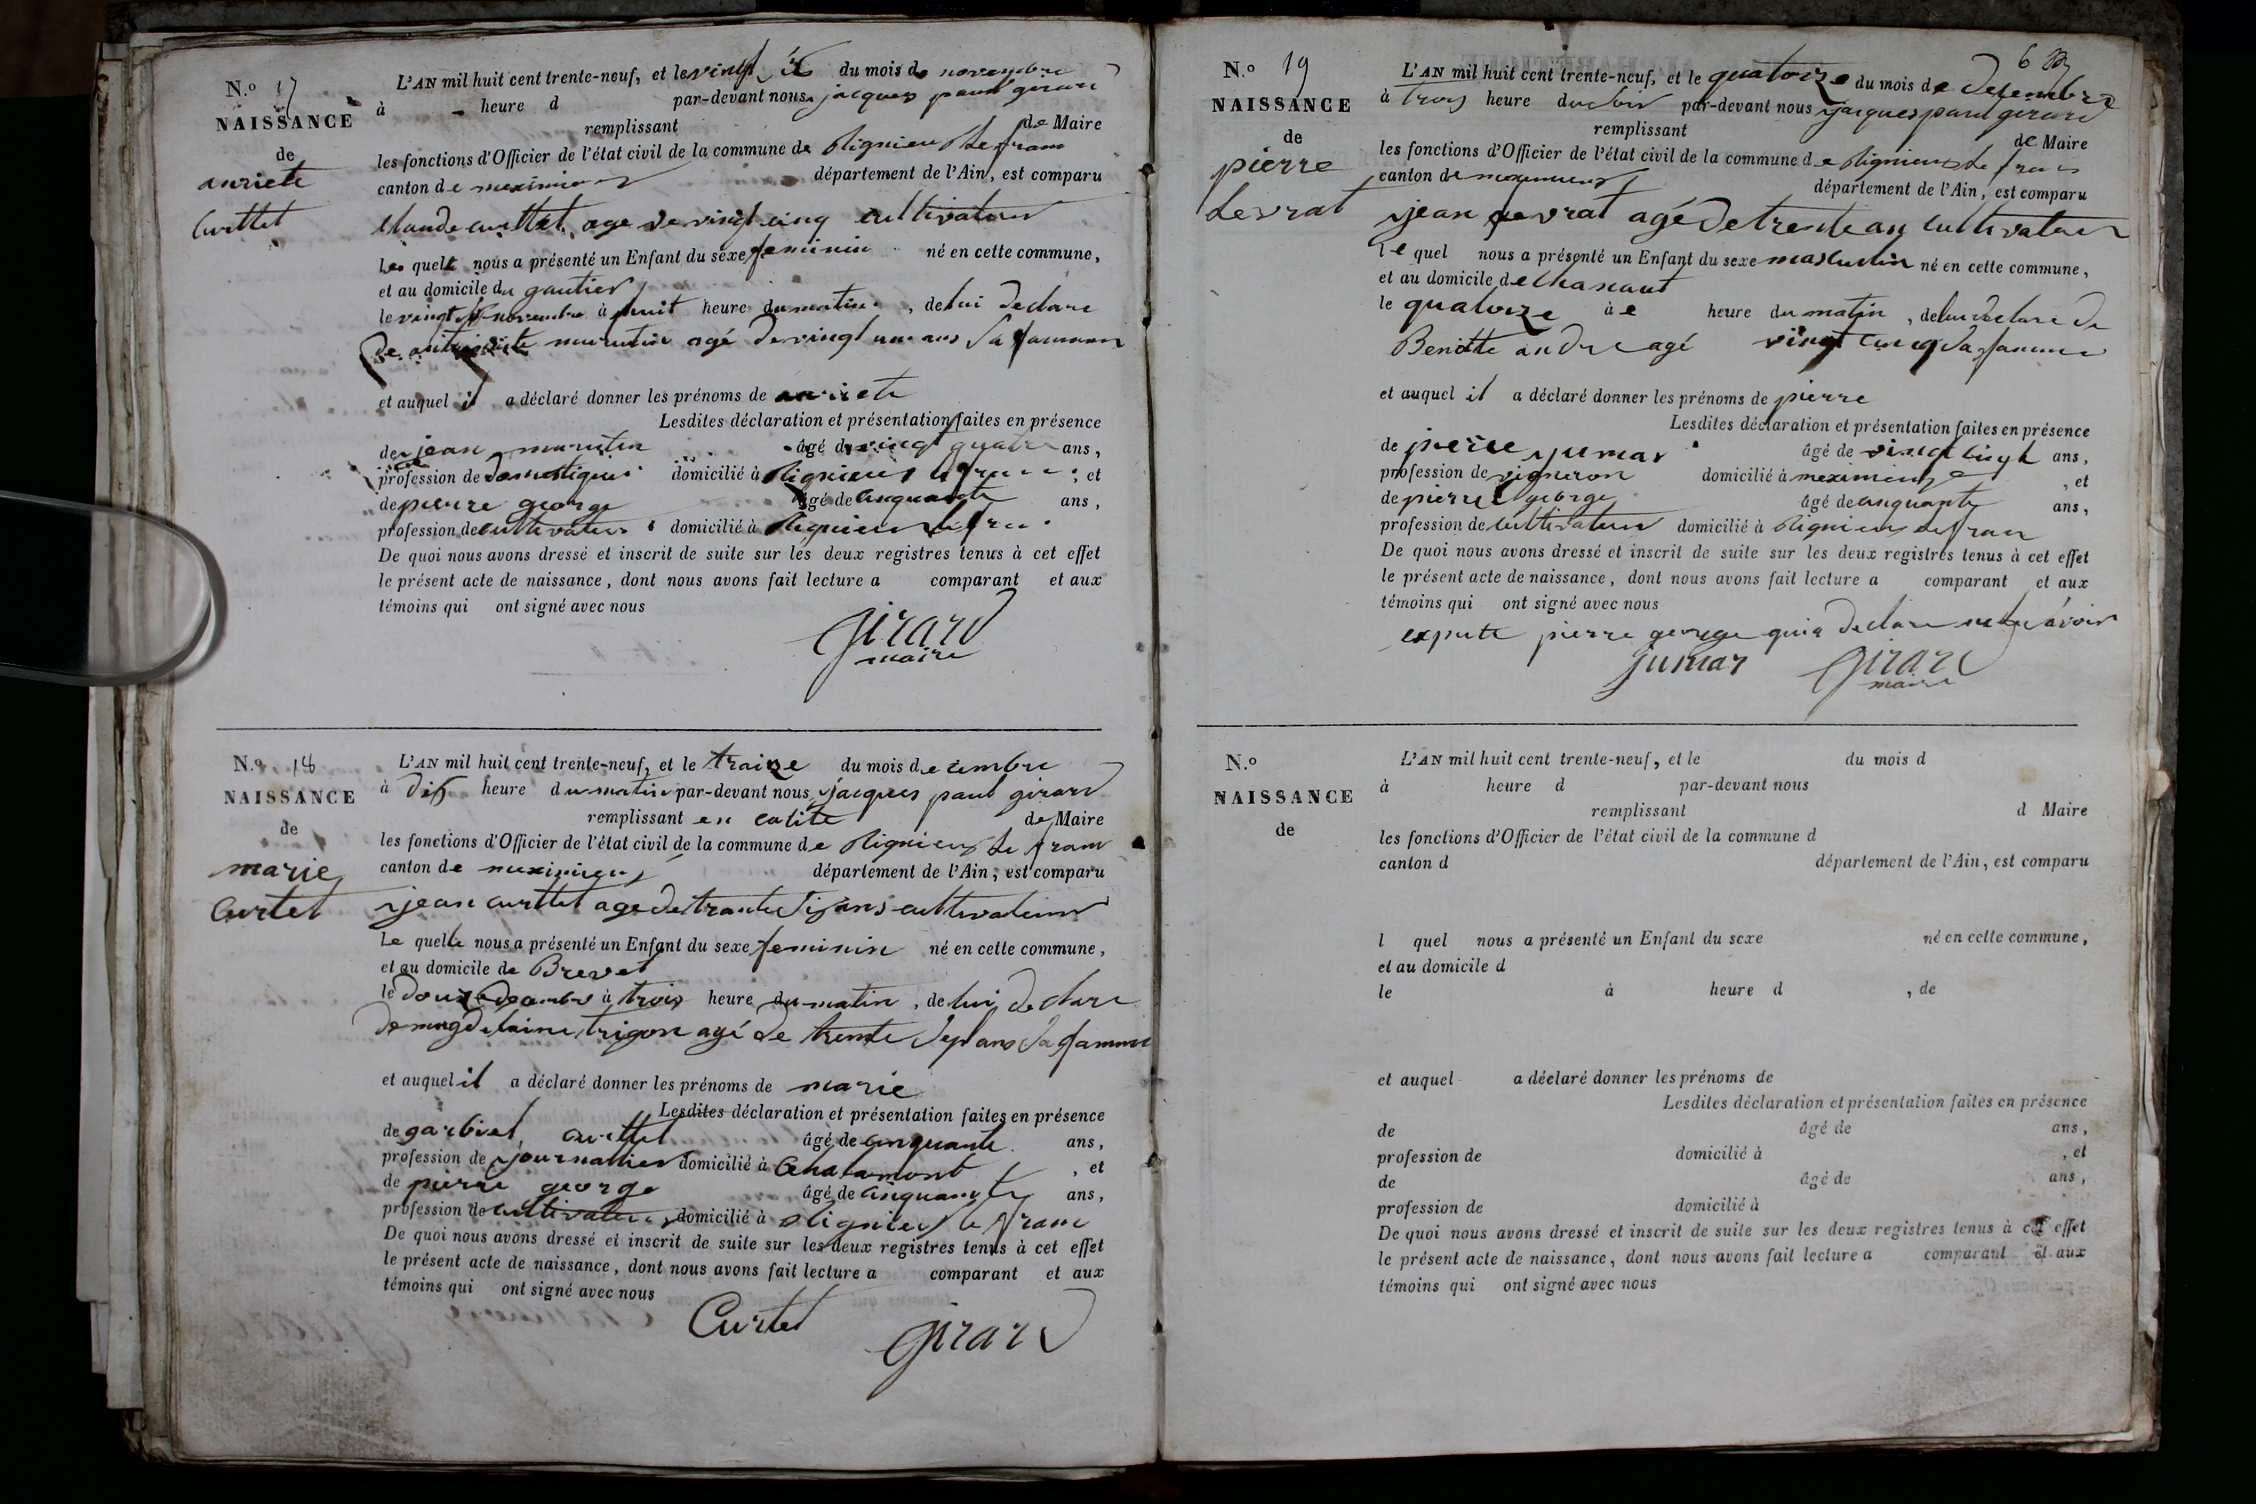 N.o 17
NAISSANCE
de
anriete
Curttet
L'AN mil huit cent trente-neuf, et le vingt six du mois de novembre
à heure d par-devant nous jacques paul girard
remplissant de Maire
les fonctions d'Officier de l'état civil de la commune de Rignieu le franc
canton de meximieux département de l'Ain, est comparu
claude curttet age de vingt cinq cultivateur
Le quelle nous a présenté un Enfant du sexe feminin né en cette commune,
et au domicile du gautier
le vingt novembre à huit heure du matin, de lui declare
De murutin agé de vingt un ans Sa famme
et auquel il a déclaré donner les prénoms de anriete
Lesdites déclaration et présentation faites en présence
de jean murutin âgé de vingt quatre ans,
profession de domestique domicilié à Rignieux le franc, et
de pierre george âgé de cinquante ans,
profession de cultivateur domicilié à Rignieux le franc
De quoi nous avons dressé et inscrit de suite sur les deux registres tenus à cet effet
le présent acte de naissance, dont nous avons fait lecture a comparant et aux
témoins qui ont signé avec nous
GIRARD
maire
N.o 18
NAISSANCE
de
marie
Curtet
L'AN mil huit cent trente-neuf, et le traize du mois decembre
à dix heure du matin par-devant nous jacques paul girard
remplissant en calite de Maire
les fonctions d'Officier de l'état civil de la commune de Rignieux le franc
canton de meximieux département de l'Ain, est comparu
jean curttet age de trante Six ans cultivateur
Le quelle nous a présenté un Enfant du sexe feminin né en cette commune,
et au domicile de Brevet
le douze decembre à trois heure du matin, de lui declare
de magdelaine trigon agé de trente Sept ans Sa famme
et auquel il a déclaré donner les prénoms de marie
Lesdites déclaration et présentation faites en présence
de garbiel curttet âgé de cinquante ans,
profession de journalier domicilié à , et
de pierre george âgé de cinquante ans,
profession de cultivateur domicilié à Rignieux le franc
De quoi nous avons dressé et inscrit de suite sur les deux registres tenus à cet effet
le présent acte de naissance, dont nous avons fait lecture a comparant et aux
témoins qui ont signé avec nous
Curtet GIRARD
6
N.o 19
NAISSANCE
de
pierre
Levrat
L'AN mil huit cent trente-neuf, et le quatorze du mois de decembre
à trois heure du soir par-devant nous jacques paul girard
remplissant de Maire
les fonctions d'Officier de l'état civil de la commune de Rignieux le franc
canton de meximieux département de l'Ain, est comparu
jean Levrat agé de trente an cultivateur
Le quel nous a présenté un Enfant du sexe masculin né en cette commune,
et au domicile de chanaut
le quatorze à heure du matin, de lui declare de
Benoitte andre agé vingt cincq Sa famme
et auquel il a déclaré donner les prénoms de pierre
Lesdites déclaration et présentation faites en présence
de pierre jumar âgé de vingt huit ans,
profession de vigneron domicilié à meximieux, et
de pierre george âgé de cinquante ans,
profession de cultivateur domicilié à Rignieux le franc
De quoi nous avons dressé et inscrit de suite sur les deux registres tenus à cet effet
le présent acte de naissance, dont nous avons fait lecture a comparant et aux
témoins qui ont signé avec nous
expete pierre george qui a declare ne le savoir
jumar GIRARD
maire
N.o
NAISSANCE
de
L'AN mil huit cent trente-neuf, et le du mois d
à heure d par-devant nous
remplissant d Maire
les fonctions d'Officier de l'état civil de la commune d
canton d département de l'Ain, est comparu
l quel nous a présenté un Enfant du sexe né en cette commune,
et au domicile d
le à heure d , de
et auquel a déclaré donner les prénoms de
Lesdites déclaration et présentation faites en présence
de âgé de ans,
profession de domicilié à , et
de âgé de ans,
profession de domicilié à
De quoi nous avons dressé et inscrit de suite sur les deux registres tenus à cet effet
le présent acte de naissance, dont nous avons fait lecture a comparant et aux
témoins qui ont signé avec nous